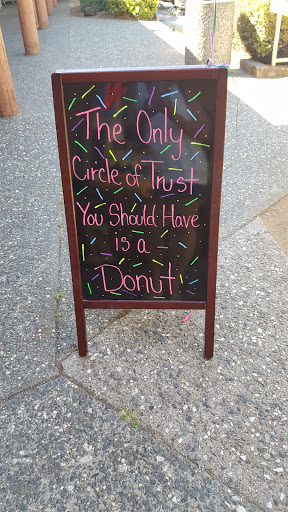 The Only
Circle of Trust
You Should Have
is a
Donut